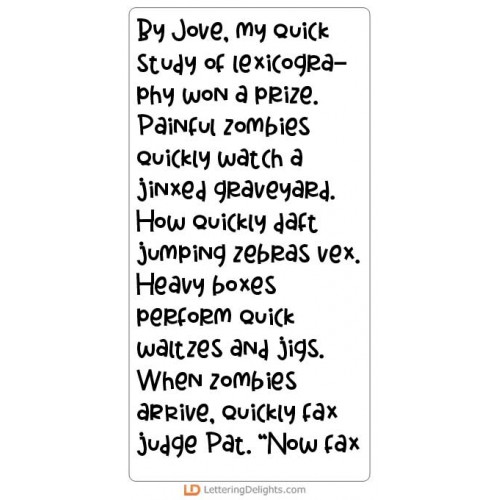 By Jove, my quick
study of lexicogra-
phy won a prize.
Painful zombies
quickly watch a
jinxed graveyard.
How quickly daft
jumping zebras vex.
Heavy boxes
perform quick
waltzes and jigs.
When zombies
arrive, quickly fax
judge Pat. "Now fax
LD LetteringDelights.com